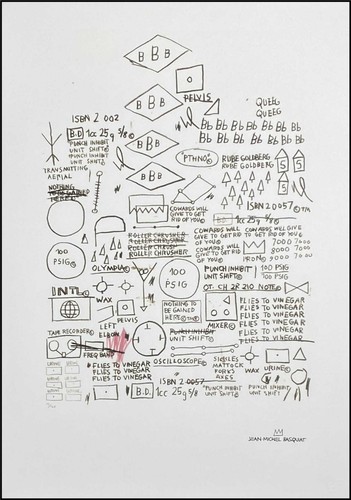 B B B
B B B
B B B
B B B
PELVIS
QUEEG
QUEEG
ISBN 2 002
B.D 1cc 25g 5/8©
PUNCH INHIBIT
UNIT SHIFT©
PUNCH INHIBIT
UNIT SHIFT©
TRANSMITTING
AERIAL
NOTHING
TO BE GAINED
HERE©
Bb Bb Bb Bb Bb Bb Bb
Bb Bb Bb Bb Bb Bb Bb
PTHNO©
RUBE GOLDBERG
RUBE GOLDBERG
S
S
ISBN 2 0057
COWARDS WILL
GIVE TO GET
RID OF YOU©
1cc 25g
ROLLER CRUSHER
ROLLER CRUSHER
ROLLER CRUSHER
ROLLER CRUSHER
COWARDS WILL
GIVE TO GET RID
OF YOU©
COWARDS WILL
GIVE TO GET RID
OF YOU©
COWARDS WILL GIVE
TO GET RID OF YOU©
7000
9000
IRON© 9000
100
PSIG©
OLYMPIA©
100
PSIG©
PUNCH INHIBIT
UNIT SHIFT©
100 PSIG
100 PSIG
INTL©
WAX
PELVIS
OT-CH 2R 210 NOTE
NOTHING TO
BE GAINED
HERE©
MIXER©
FLIES TO VINEGAR
FLIES TO VINEGAR
FLIES TO VINEGAR
FLIES TO VINEGAR
FLIES TO VINEGAR
LEFT
ELBOW
TAPE RECORDER©
FREQ BAND
PUNCH INHIBIT
UNIT SHIFT©
FLIES TO VINEGAR
FLIES TO VINEGAR
FLIES TO VINEGAR
OSCILLOSCOPE©
SICKLES
MATTOCK
FORKS
AXES
WAX
URINE©
ISBN 2 0057
B.D. 1cc 25g 5/8
PUNCH INHIBIT
UNIT SHIFT©
PUNCH INHIBIT
UNIT SHIFT©
JEAN-MICHEL BASQUIAT